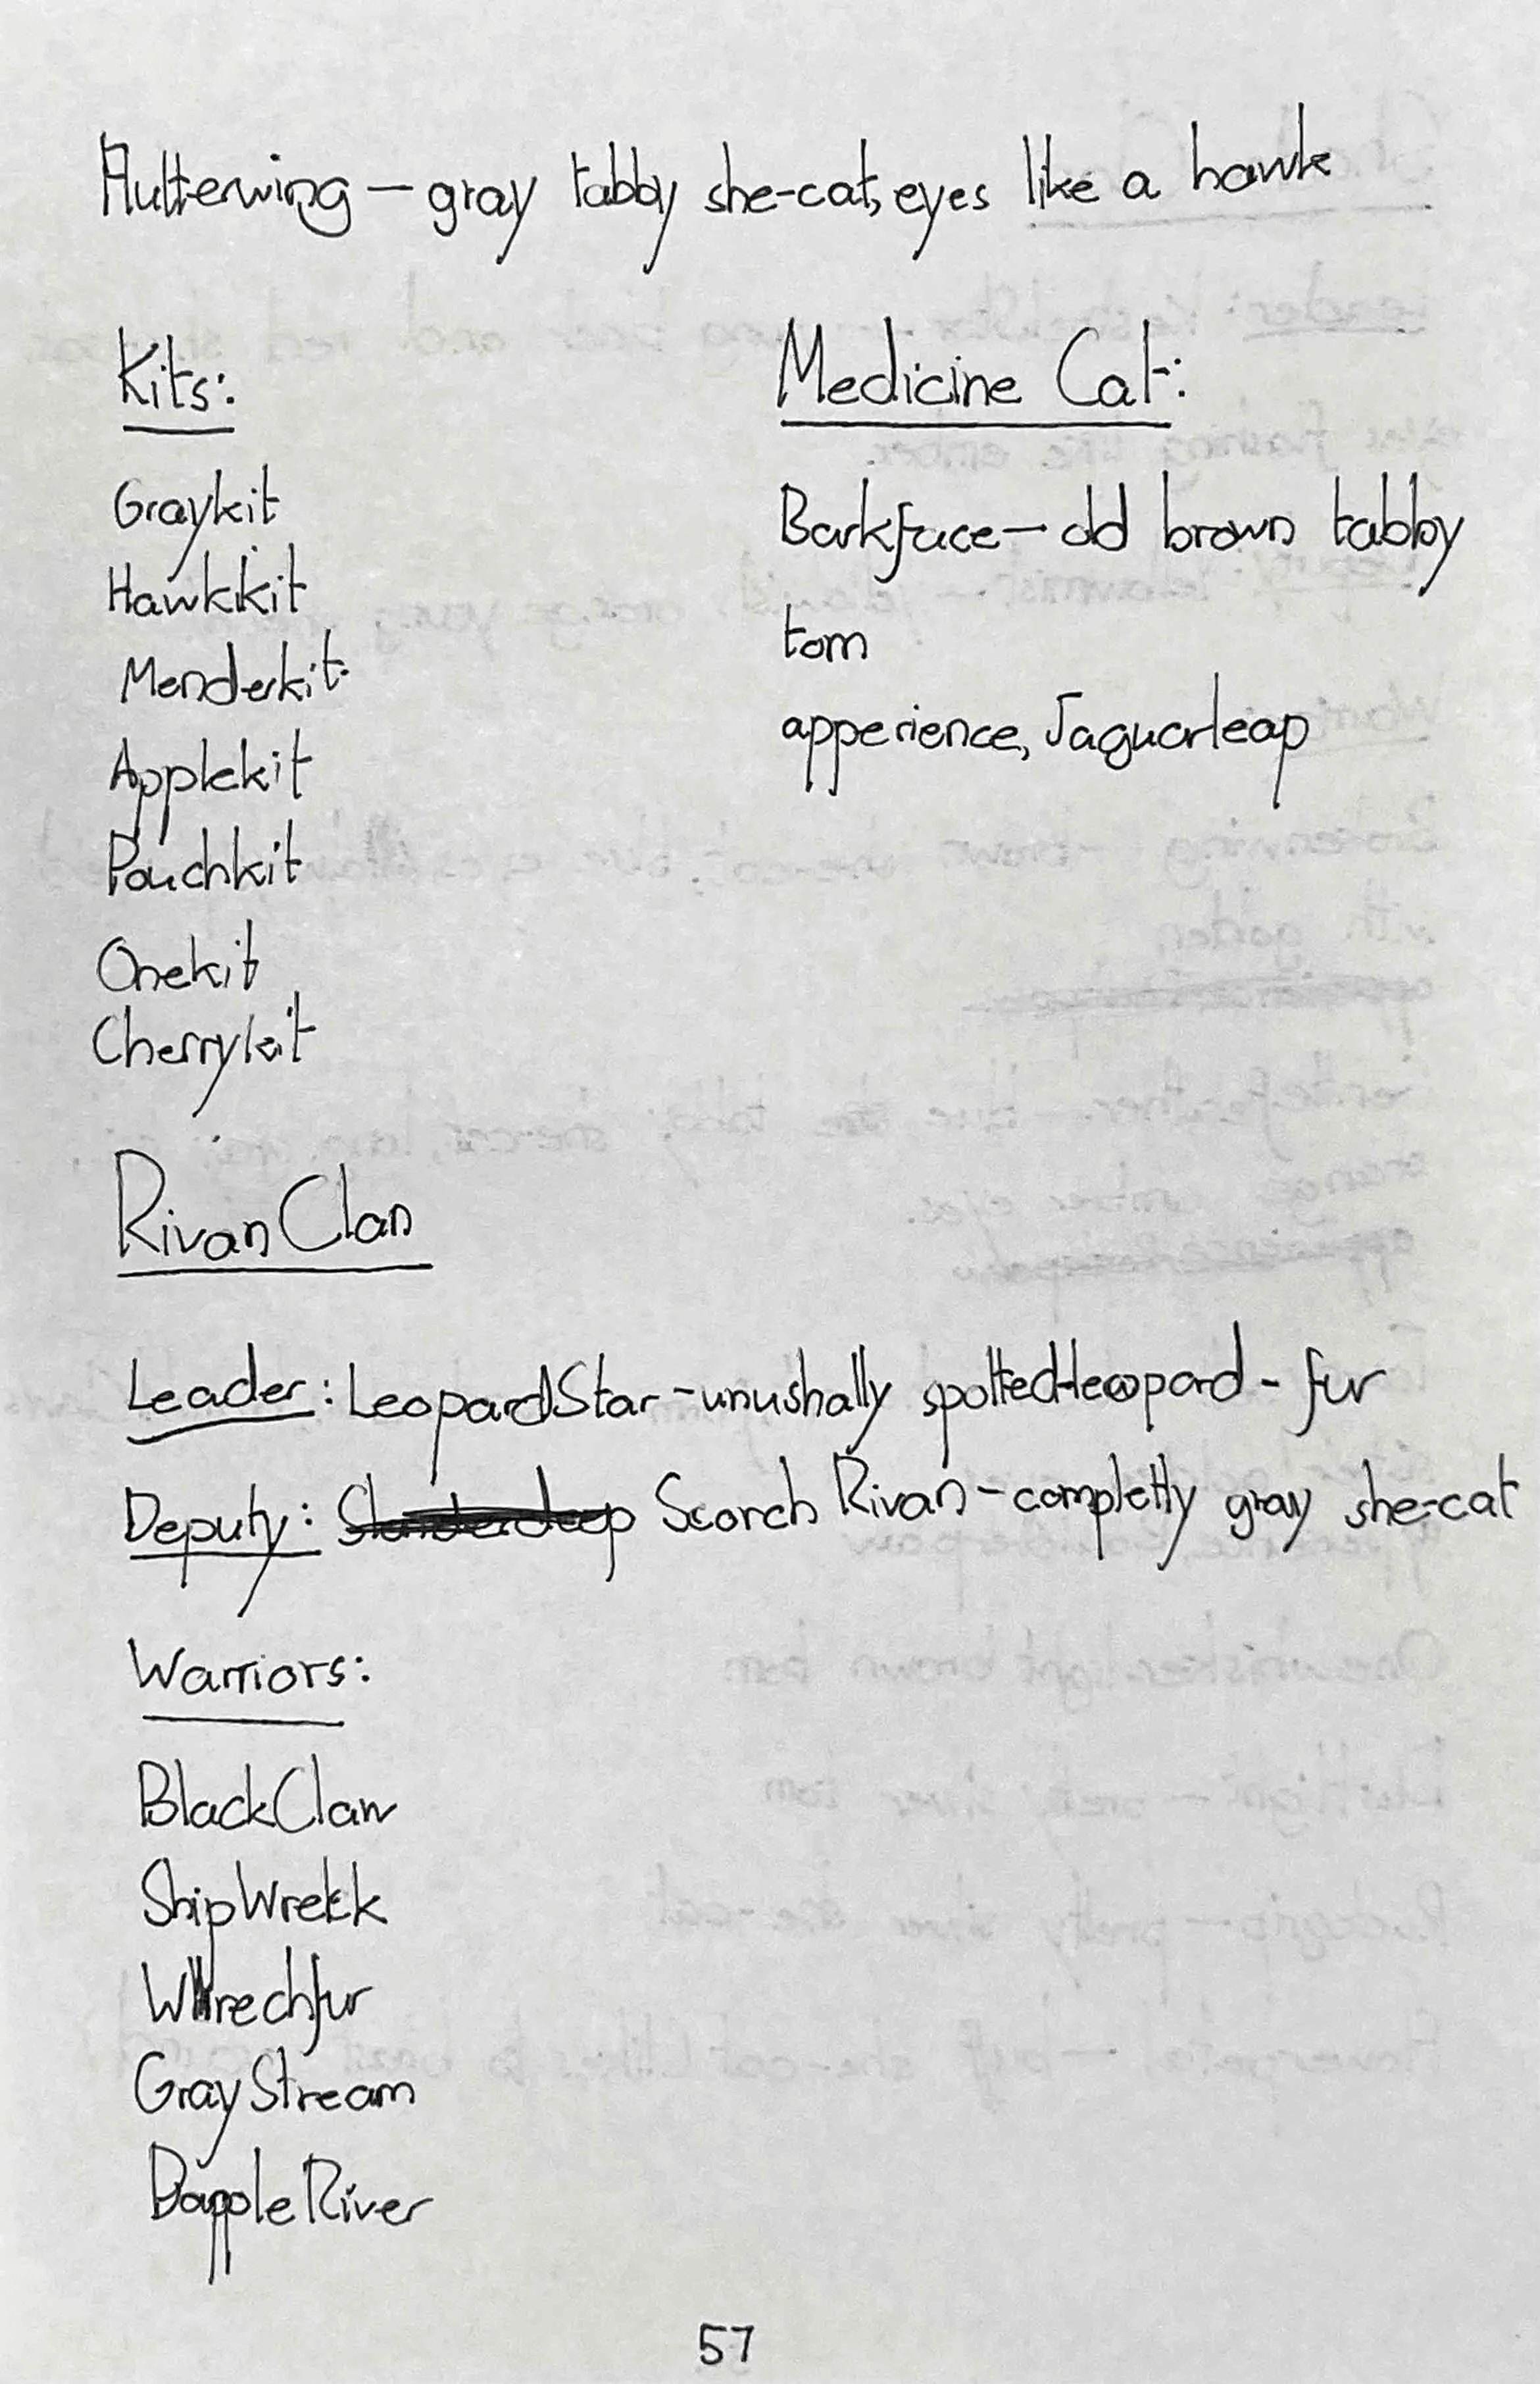 Flutterwing — gray tabby she-cat, eyes like a hawk
Kits:
Graykit
Hawkkit
Menderkit
Applekit
Pouchkit
Onekit
Cherrykit
Medicine Cat:
Barkface — old brown tabby
tom
apperience, Jaguarleap
Rivan Clan
Leader: LeopardStar - unushally spotted-leopard - fur
Deputy: Scorch Rivan - completly gray she-cat
Warriors:
BlackClaw
ShipWrekk
Wrechfur
GrayStream
DappleRiver
57